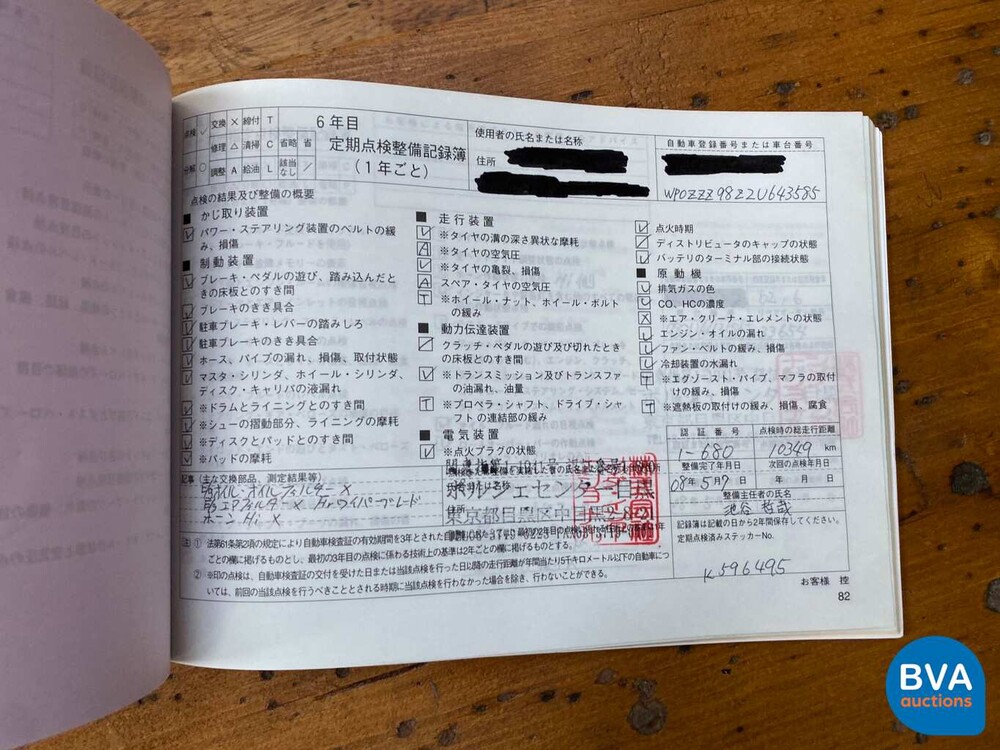 点検 ✓ 交換 × 締付 T
修理 △ 清掃 C 省略 省
分解 ○ 調整 A 給油 L 該当なし ／
6年目
定期点検整備記録簿
(1年ごと)
使用者の氏名または名称
住所
自動車登録番号または車台番号
WP0ZZZ98Z2U643585
点検の結果及び整備の概要
■ かじ取り装置
パワー・ステアリング装置のベルトの緩
み、損傷
■ 制動装置
ブレーキ・ペダルの遊び、踏み込んだと
きの床板とのすき間
ブレーキのきき具合
駐車ブレーキ・レバーの踏みしろ
駐車ブレーキのきき具合
ホース、パイプの漏れ、損傷、取付状態
マスタ・シリンダ、ホイール・シリンダ、
ディスク・キャリパの液漏れ
※ドラムとライニングとのすき間
※シューの摺動部分、ライニングの摩耗
※ディスクとパッドとのすき間
※パッドの摩耗
■ 走行装置
※タイヤの溝の深さ異状な摩耗
※タイヤの空気圧
※タイヤの亀裂、損傷
スペア・タイヤの空気圧
※ホイール・ナット、ホイール・ボルト
の緩み
■ 動力伝達装置
クラッチ・ペダルの遊び及び切れたとき
の床板とのすき間
※トランスミッション及びトランスファ
の油漏れ、油量
※プロペラ・シャフト、ドライブ・シャ
フトの連結部の緩み
■ 電気装置
※点火プラグの状態
点火時期
ディストリビュータのキャップの状態
バッテリのターミナル部の接続状態
■ 原動機
排気ガスの色
CO、HCの濃度
※エア・クリーナ・エレメントの状態
エンジン・オイルの漏れ
ファン・ベルトの緩み、損傷
冷却装置の水漏れ
※エグゾースト・パイプ、マフラの取付
けの緩み、損傷
※遮熱板の取付けの緩み、損傷、腐食
認証番号 点検時の総走行距離
1-680 10349 km
整備完了年月日 次回の点検年月日
08年5月7日 年 月 日
整備主任者の氏名
記録簿は記載の日から2年間保存してください。
定期点検済みステッカーNo.
K596495
記事 (主な交換部品、測定結果等)
オイル・オイルフィルター ×
エアフィルター × Frワイパーブレード
ホーン Hi ×
ポルシェセンター目黒
東京都目黒区中目黒
注) ① 法第61条第2項の規定により自動車検査証の有効期間を3年とされた自
ごとの欄に掲げるものとし、最初の3年目の点検に係わる技術上の基準は2年ごとの欄に掲げるものとする。
② ※印の点検は、自動車検査証の交付を受けた日または当該点検を行った日以降の走行距離が年間当たり5千キロメートル以下の自動車につ
いては、前回の当該点検を行うべきこととされる時期に当該点検を行わなかった場合を除き、行わないことができる。
お客様 控
82
BVA
auctions